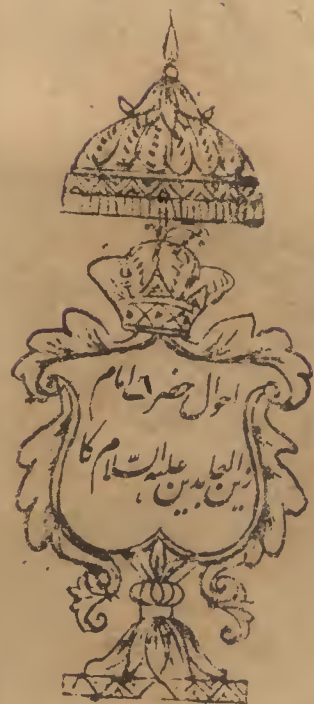 احوال حضرت امام
زین العابدین علیہ السلام کا